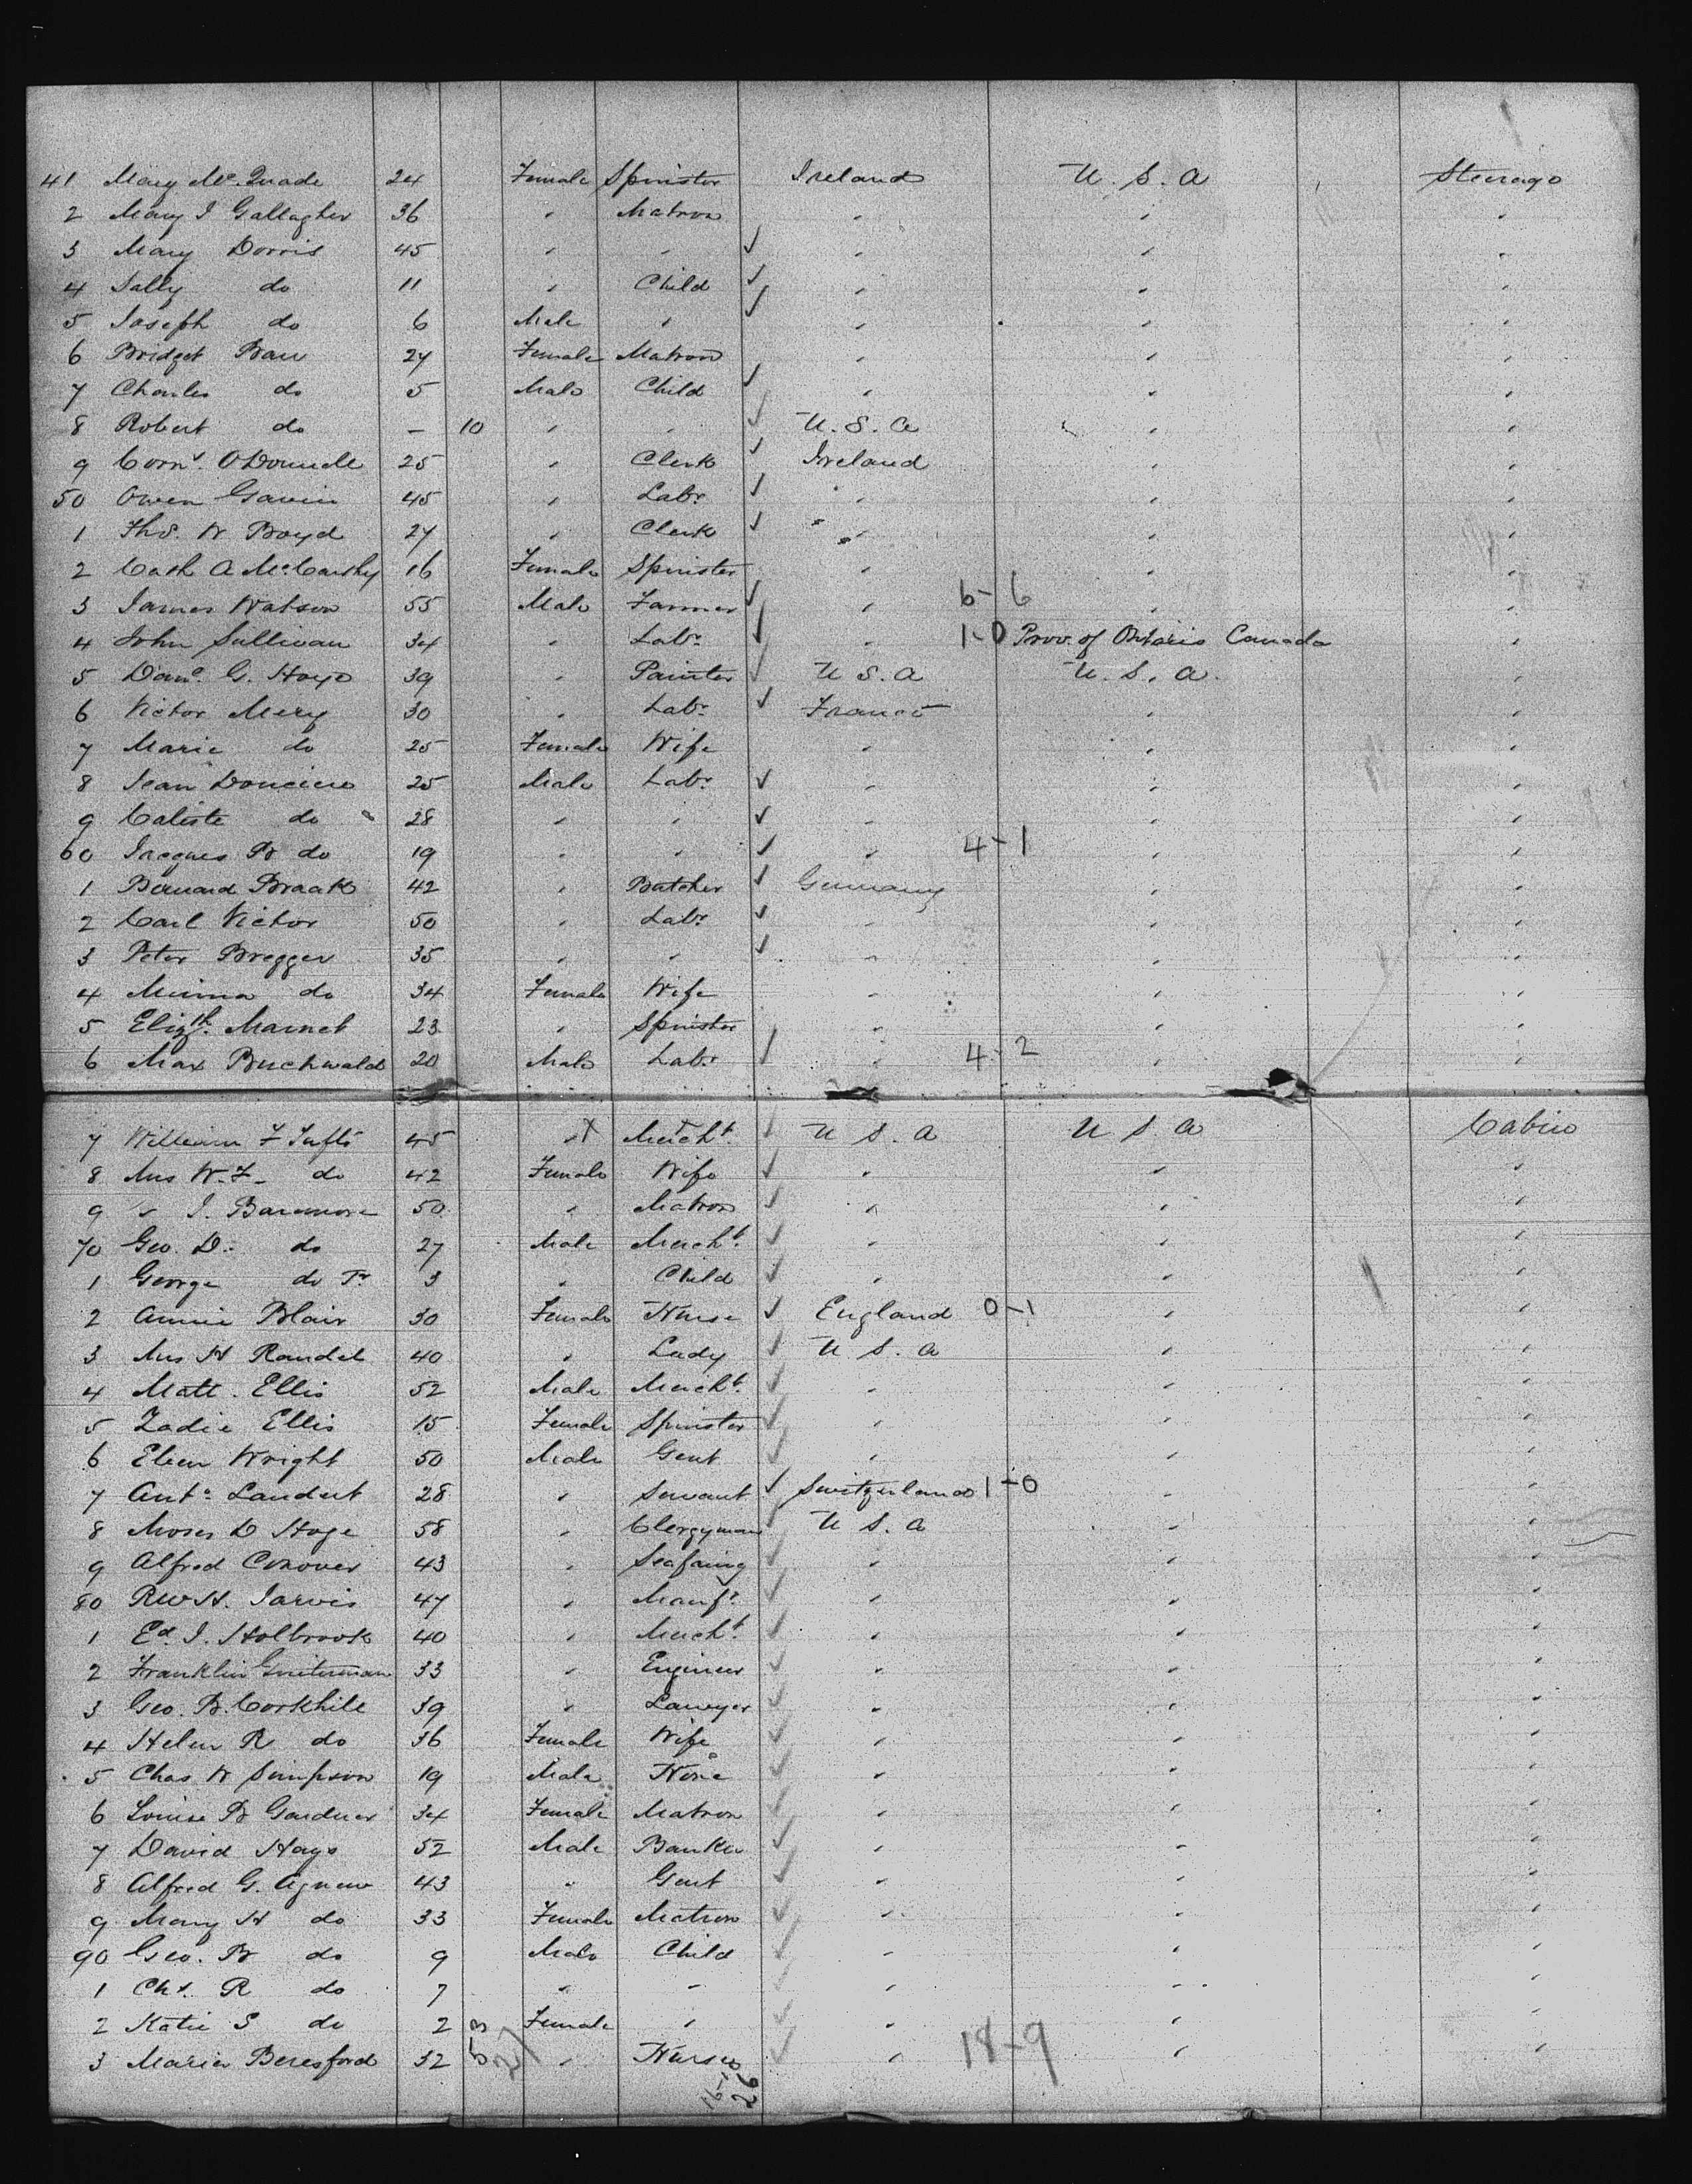 41 Mary Mc. Quade 24 Female Spinster Ireland U. S. A Steerage
2 Mary J Gallagher 36 " Matron " " "
3 Mary Dorris 45 " " ✓ " " "
4 Sally do 11 " Child ✓ " " "
5 Joseph do 6 Male " ✓ " " "
6 Bridget 27 Female Matron " " "
7 Charles do 5 Male Child ✓ " " "
8 Robert do — 10 " " ✓ U. S. A " "
9 Corns. ODonnell 25 " Clerk ✓ Ireland " "
50 Owen Gavin 45 " Labr ✓ " " "
1 Thos. W Boyd 27 " Clerk ✓ " " "
2 Cath A McCarthy 16 Female Spinster " " "
3 James Watson 55 Male Farmer ✓ " 6-6 " "
4 John Sullivan 34 " Labr ✓ " 1-0 Prov. of Ontario Canada "
5 Danl. G. Hays 39 " Painter ✓ U S. A U. S. A. "
6 Victor Mery 30 " Labr ✓ France " "
7 Marie do 25 Female Wife " " "
8 Jean 25 Male Labr ✓ " " "
9 Caliste do 28 " " ✓ " " "
60 Jacques B do 19 " " ✓ " 4-1 " "
1 Bernard Braak 42 " Butcher ✓ Germany " "
2 Carl Victor 50 " Labr ✓ " " "
3 Peter Bregger 35 " " ✓ " " "
4 Minna do 34 Female Wife " " "
5 Elizth. Mamet 23 " Spinster " " "
6 Max Buchwald 20 Male Labr ✓ " 4-2 " "
7 William F Tufts 45 " Mercht. ✓ U S. A U S. A Cabin
8 Mrs W. F. do 42 Female Wife ✓ " " "
9 " J. Baremore 50 " Matron ✓ " " "
70 Geo. D. do 27 Male Mercht. ✓ " " "
1 George do Jr 3 " Child ✓ " " "
2 Annie Blair 30 Female Nurse ✓ England 0-1 " "
3 Mrs H Randel 40 " Lady ✓ U. S. A " "
4 Matt. Ellis 52 Male Mercht. ✓ " " "
5 Zadie Ellis 15 Female Spinster ✓ " " "
6 Eben Wright 50 Male Gent ✓ " " "
7 Anto. Landert 28 " Servant ✓ Switzerland 1-0 " "
8 Moses D Hoge 58 " Clergyman ✓ U S. A " "
9 Alfred Conover 43 " Seafaring ✓ " " "
80 Rev H. Jarvis 47 " Manfr ✓ " " "
1 Ed. J. Holbrook 40 " Mercht. ✓ " " "
2 Franklin Guiterman 33 " Engineer ✓ " " "
3 Geo. B. Corkhile 39 " Lawyer ✓ " " "
4 Helen R do 36 Female Wife ✓ " " "
5 Chas W Simpson 19 Male None ✓ " " "
6 Louise B Gardner 34 Female Matron ✓ " " "
7 David Hays 52 Male Banker ✓ " " "
8 Alfred G. Agnew 43 " Gent ✓ " " "
9 Mary H do 33 Female Matron ✓ " " "
90 Geo. B do 9 Male Child ✓ " " "
1 Chs. R do 7 " " ✓ " " "
2 Katie S do 2 Female " ✓ " " "
3 Maria Beresford 32 53 27 " Nurse ✓ " 18-9 " "
26